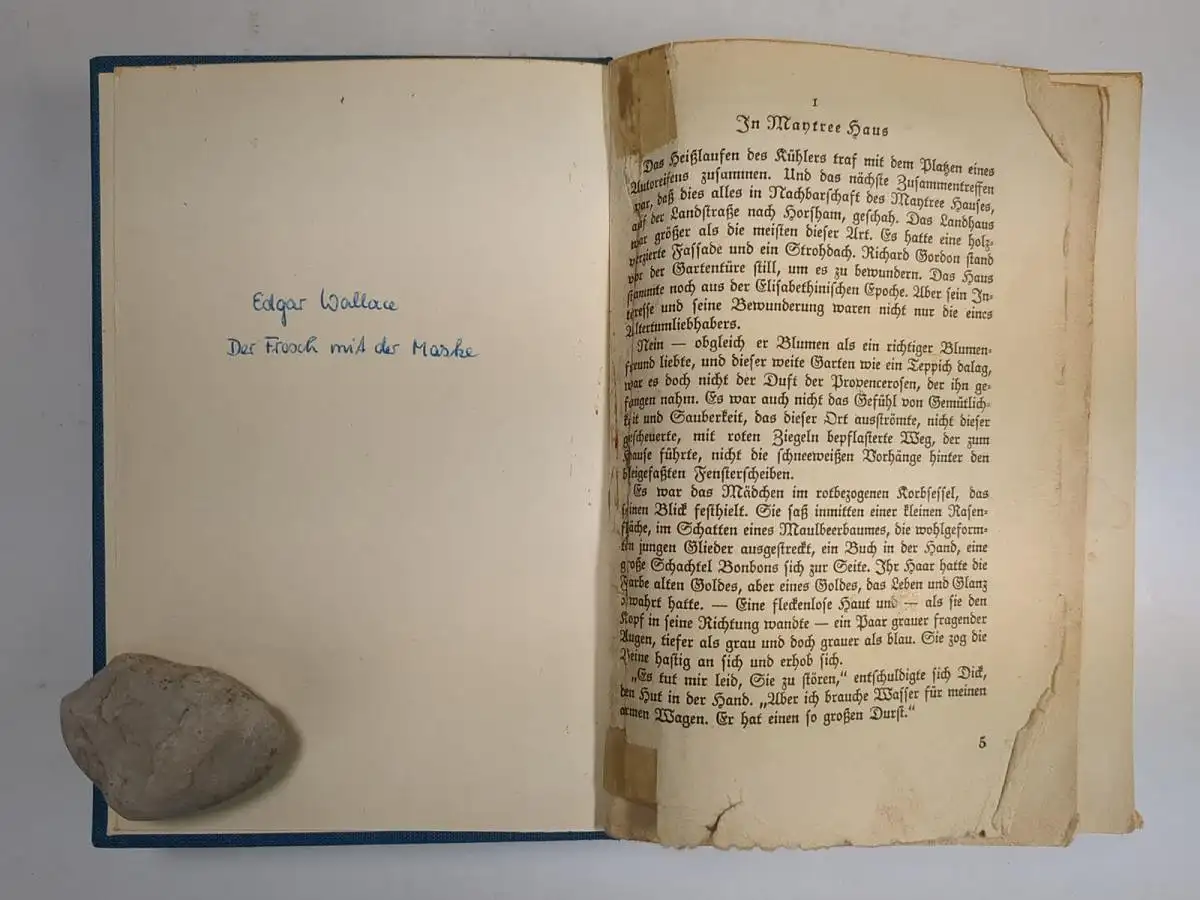 Edgar Wallace
Der Frosch mit der Maske
1
In Maytree Haus
Das Heißlaufen des Kühlers traf mit dem Platzen eines
Autoreifens zusammen. Und das nächste Zusammentreffen
war, daß dies alles in Nachbarschaft des Maytree Hauses,
auf der Landstraße nach Horsham, geschah. Das Landhaus
war größer als die meisten dieser Art. Es hatte eine holz-
verzierte Fassade und ein Strohdach. Richard Gordon stand
vor der Gartentüre still, um es zu bewundern. Das Haus
stammte noch aus der Elisabethinischen Epoche. Aber sein In-
teresse und seine Bewunderung waren nicht nur die eines
Altertumliebhabers.
Nein — obgleich er Blumen als ein richtiger Blumen-
freund liebte, und dieser weite Garten wie ein Teppich dalag,
war es doch nicht der Duft der Provencerosen, der ihn ge-
fangen nahm. Es war auch nicht das Gefühl von Gemütlich-
keit und Sauberkeit, das dieser Ort ausströmte, nicht dieser
gescheuerte, mit roten Ziegeln bepflasterte Weg, der zum
Hause führte, nicht die schneeweißen Vorhänge hinter den
bleigefaßten Fensterscheiben.
Es war das Mädchen im rotbezogenen Korbsessel, das
seinen Blick festhielt. Sie saß inmitten einer kleinen Rasen-
fläche, im Schatten eines Maulbeerbaumes, die wohlgeform-
ten jungen Glieder ausgestreckt, ein Buch in der Hand, eine
große Schachtel Bonbons sich zur Seite. Ihr Haar hatte die
Farbe alten Goldes, aber eines Goldes, das Leben und Glanz
bewahrt hatte. — Eine fleckenlose Haut und — als sie den
Kopf in seine Richtung wandte — ein Paar grauer fragender
Augen, tiefer als grau und doch grauer als blau. Sie zog die
Beine hastig an sich und erhob sich.
„Es tut mir leid, Sie zu stören,“ entschuldigte sich Dick,
den Hut in der Hand. „Aber ich brauche Wasser für meinen
armen Wagen. Er hat einen so großen Durst.“
5